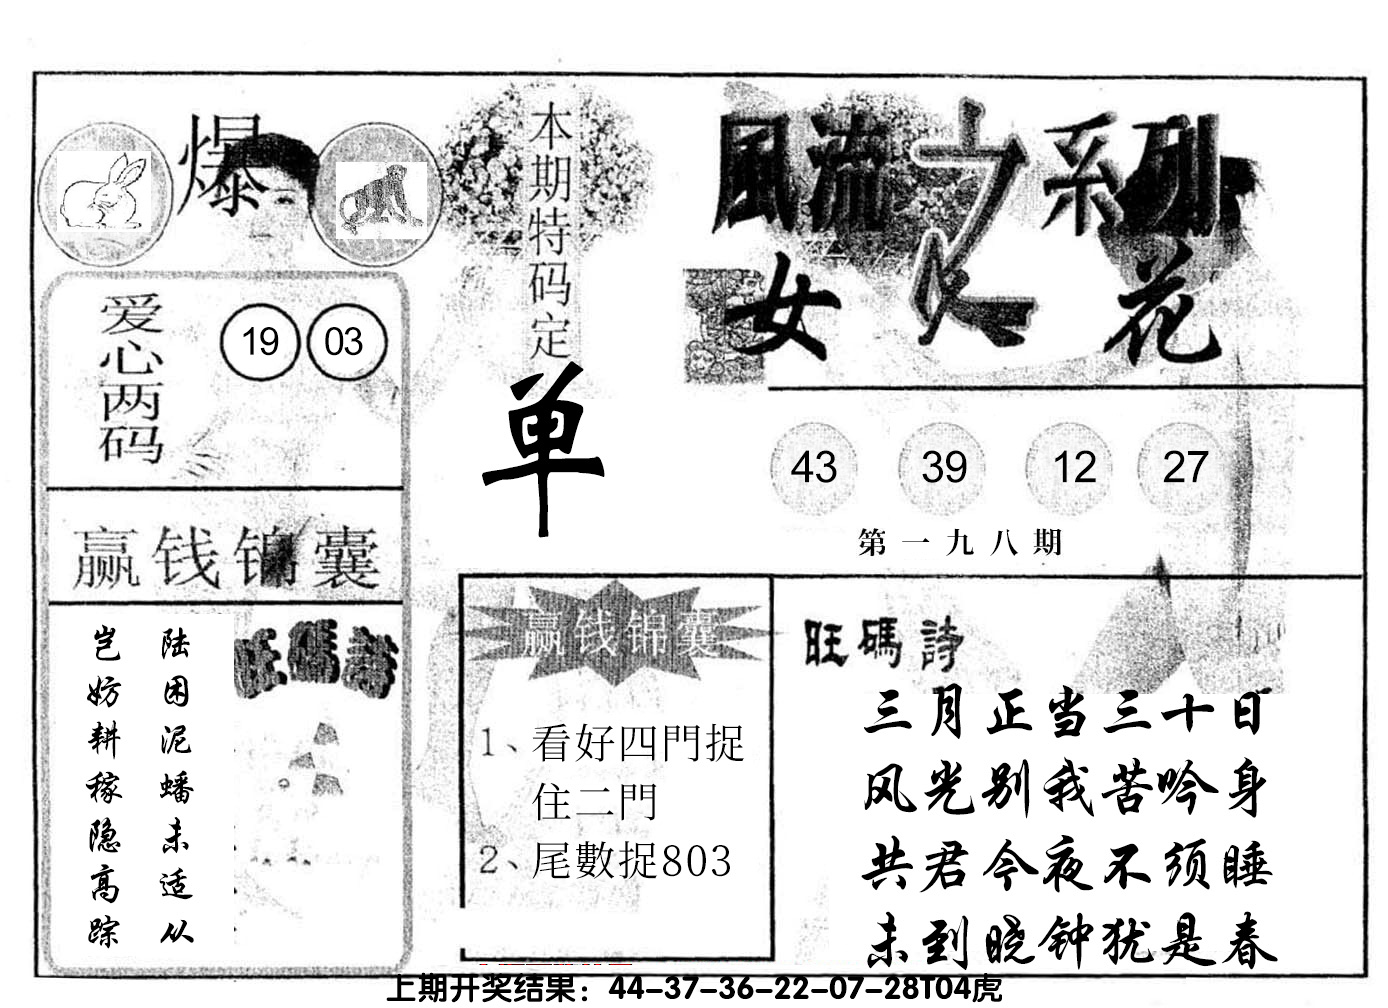 爆
本期特码定
单
風流之系列
女人花
爱心两码
19 03
43 39 12 27
第一九八期
赢钱锦囊
旺碼詩
陆困泥蟠未适从
岂妨耕稼隐高踪
赢钱锦囊
1、看好四門捉
住二門
2、尾數捉803
旺碼詩
三月正当三十日
风光别我苦吟身
共君今夜不须睡
未到晓钟犹是春
上期开奖结果：44-37-36-22-07-28T04虎